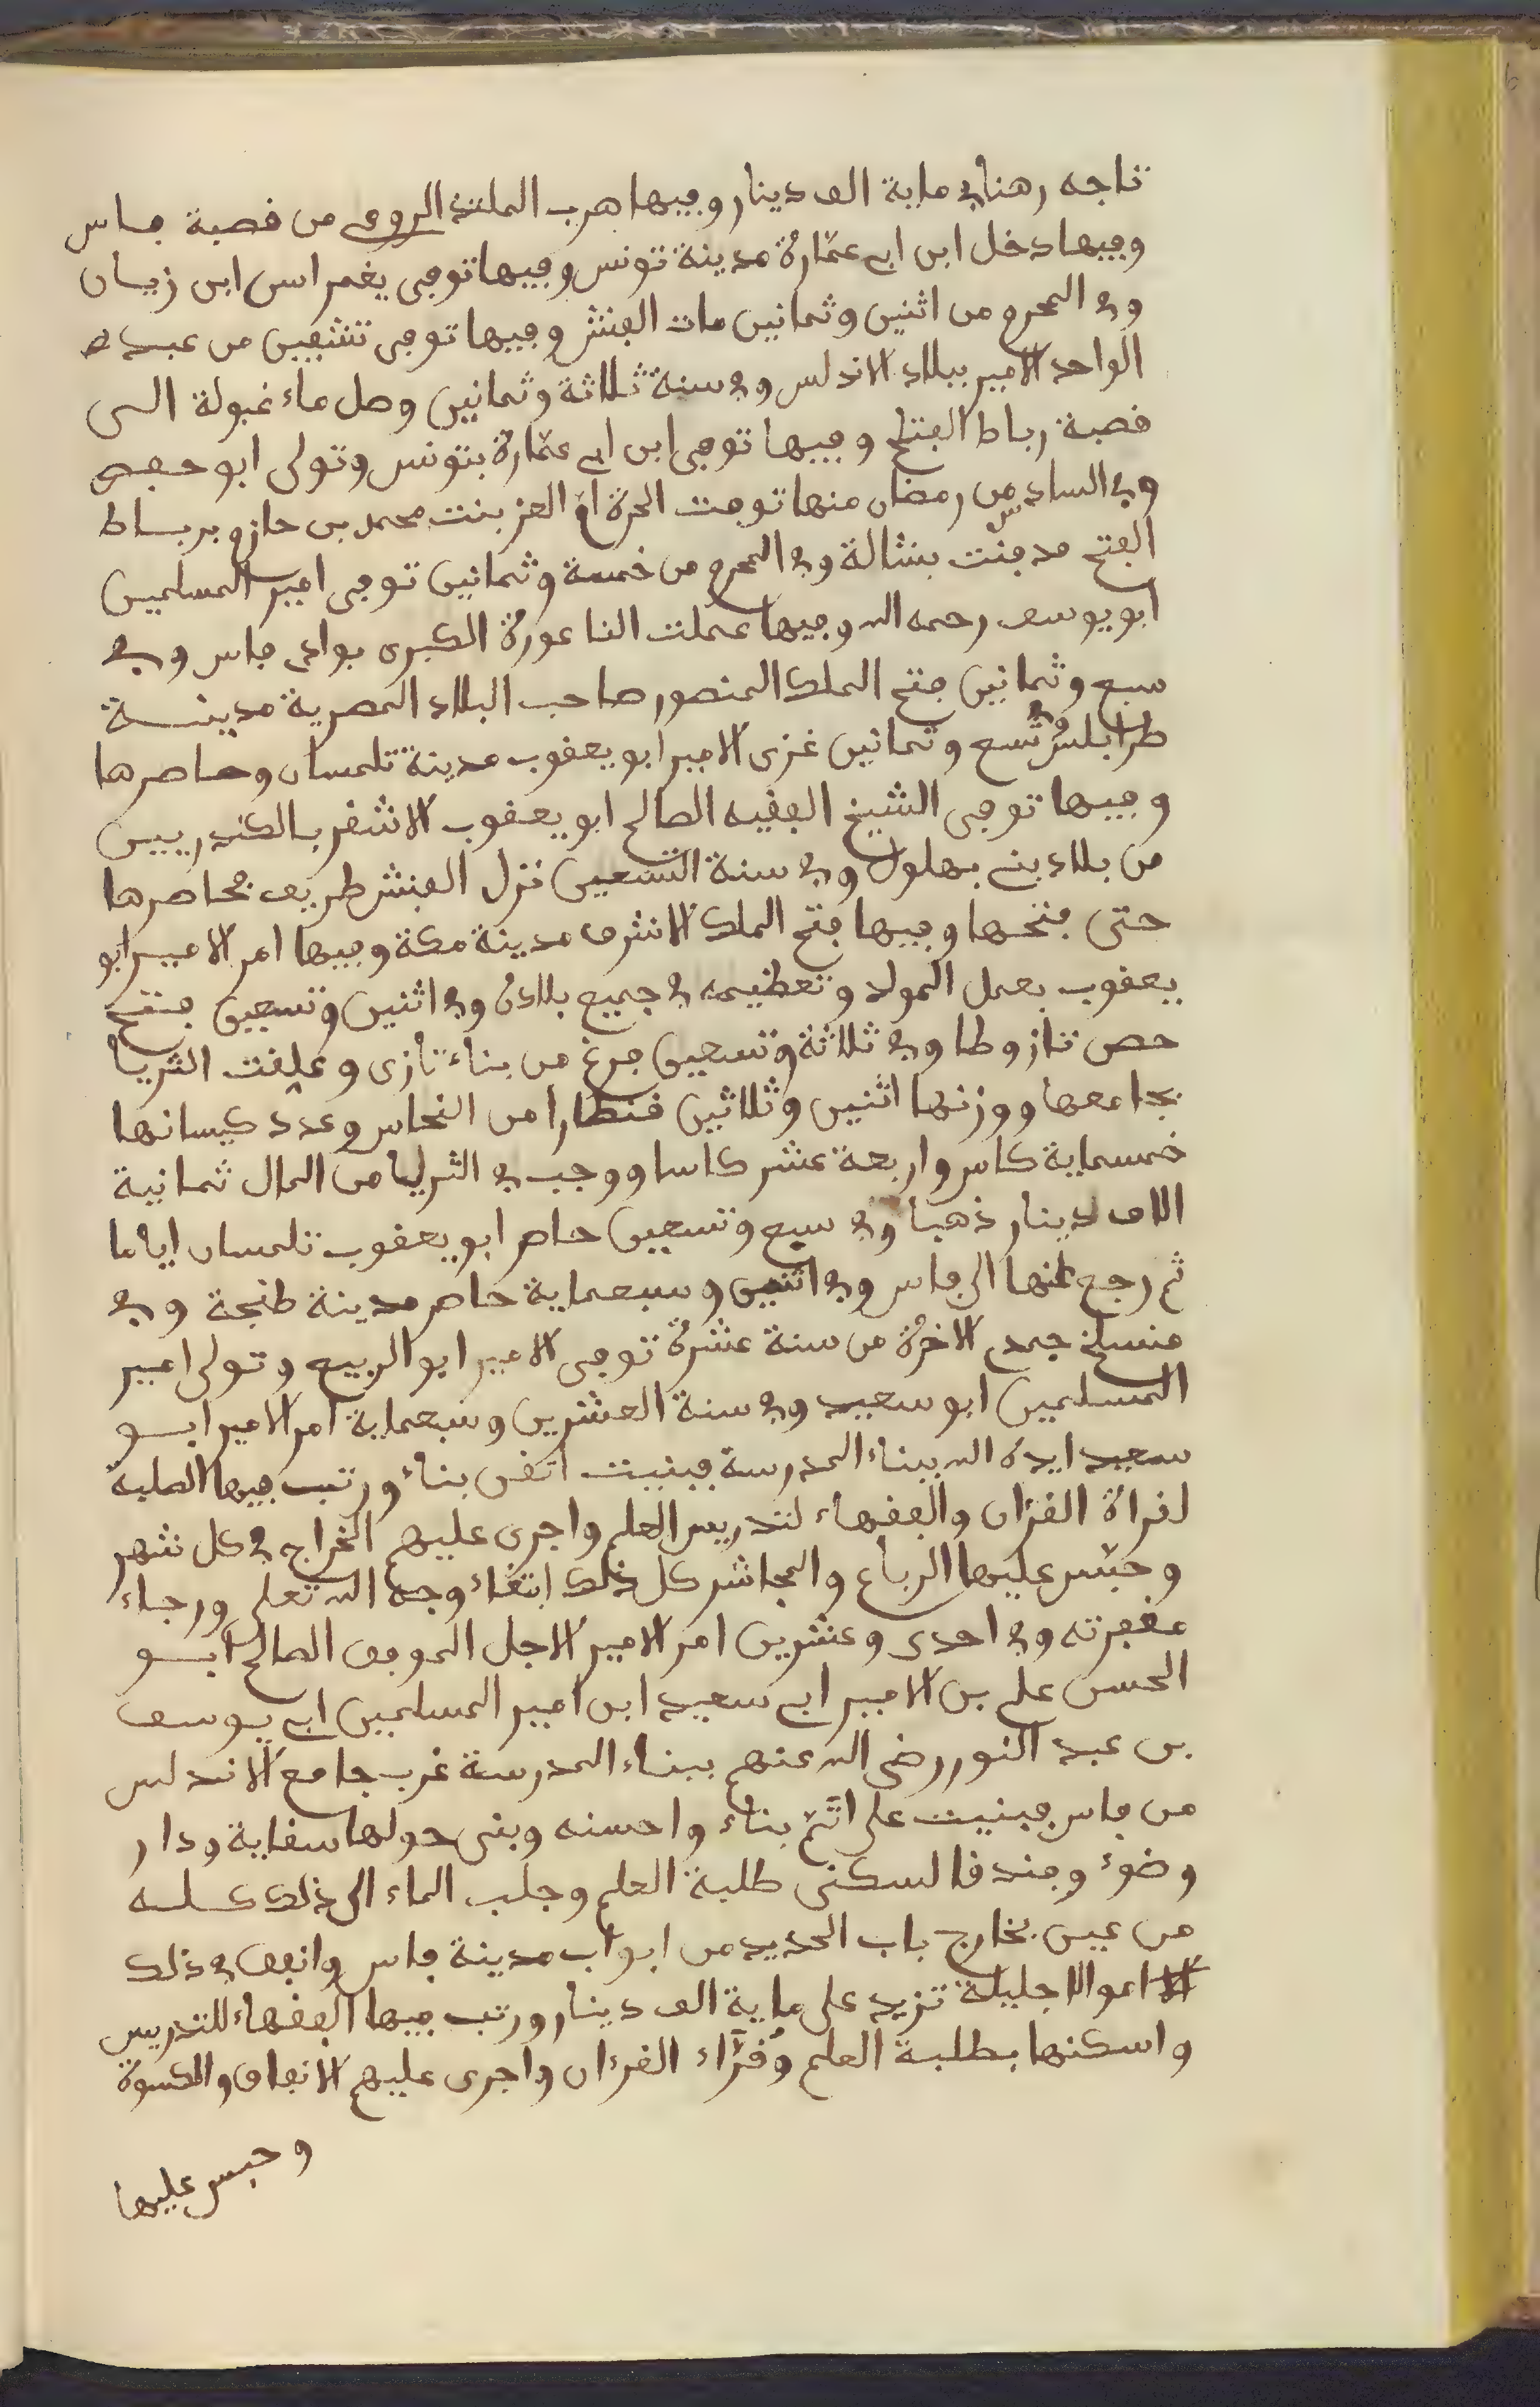 تاجه رهنا في ماية الف دينار وفيها هرب الملند الرومي من قصبة فاس
وفيها دخل ابن ابي عمّارة مدينة تونس وفيها توفى يغمراسن ابن زيان
وفي المحرم من اثنين وثمانين مات الفنش وفيها توفى تشفين من عبد
الواحد الامير ببلاد الاندلس وفي سنة ثلاثة وثمانين وصل ماء غبولة الى
قصبة رباط الفتح وفيها توفى ابن ابي عمّارة بتونس وتولى ابو حفص
وفي السادس من رمضان منها توفت الحرة ام العز بنت محمد بن حازم برباط
الفتح فدفنت بشالة وفي المحرم من خمسة وثمانين توفى امير المسلمين
ابو يوسف رحمه الله وفيها عملت الناعورة الكبرى بوادى فاس وفي
سبع وثمانين فتح الملك المنصور صاحب البلاد المصرية مدينة
طرابلس وفي تسع وثمانين غزى الامير ابو يعقوب مدينة تلمسان وحاصرها
وفيها توفى الشيخ الفقيه الصالح ابو يعقوب الاشقر بالكندريين
من بلاد بني بهلول وفي سنة التسعين نزل الفنش طريف فحاصرها
حتى فتحها وفيها فتح الملك الاشرف مدينة مكة وفيها امر الامير ابو
يعقوب بعمل المولد وتعظيمه في جميع بلاده وفي اثنين وتسعين فتح
حصن تازوطا وفي ثلاثة وتسعين فرغ من بناء تازى وعلقت الثريا
بجامعها ووزنها اثنين وثلاثين قنطارا من النحاس وعدد كيسانها
خمسماية كاس واربعة عشر كاسا ووجب في الثريا من المال ثمانية
الاف دينار ذهبا وفي سبع وتسعين حاصر ابو يعقوب تلمسان اياما
ثم رجع عنها الى فاس وفي اثنين وسبعماية حاصر مدينة طنجة وفي
منسلخ جمدى الاخرة من سنة عشرة توفى الامير ابو الربيع وتولى امير
المسلمين ابو سعيد وفي سنة العشرين وسبعماية امر الامير ابو
سعيد ايده الله ببناء المدرسة فبنيت اتقن بناء ورتب فيها الطلبة
لقراة القرءان والفقهاء لتدريس العلم واجرى عليهم الخراج في كل شهر
وحبّس عليها الرباع والمجاشر كل ذلك ابتغاء وجه الله تعلى ورجاء
مغفرته وفي احدى وعشرين امر الامير الاجل الموفق الصالح ابو
الحسن علي بن الامير ابي سعيد ابن امير المسلمين ابي يوسف
بن عبد النور رضى الله عنهم ببناء المدرسة غرب جامع الاندلس
من فاس فبنيت على اتمّ بناء واحسنه وبنى حولها سقاية ودار
وضوء وفندقا لسكنى طلبة العلم وجلب الماء الى ذلك كله
من عين بخارج باب الحديد من ابواب مدينة فاس وانفق في ذلك
اموالا جليلة تزيد على ماية الف دينار ورتب فيها الفقهاء للتدريس
واسكنها بطلبة العلم وقرّاء القرءان واجرى عليهم الانفاق والكسوة
وحبس عليها